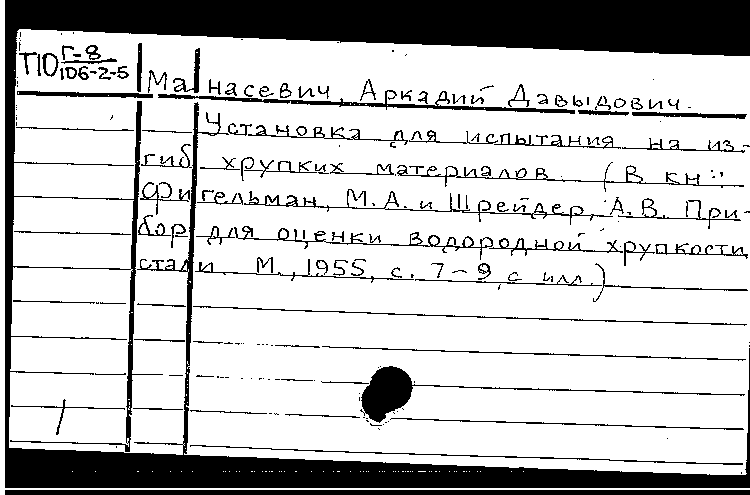 ТIО Г-8
106-2-5
Манасевич, Аркадий Давыдович.
Установка для испытания на из-
гиб хрупких материалов. (В кн.:
Фигельман, М.А. и Шрейдер, А.В. При-
бор для оценки водородной хрупкости
стали. М., 1955, с. 7-9, с илл.)